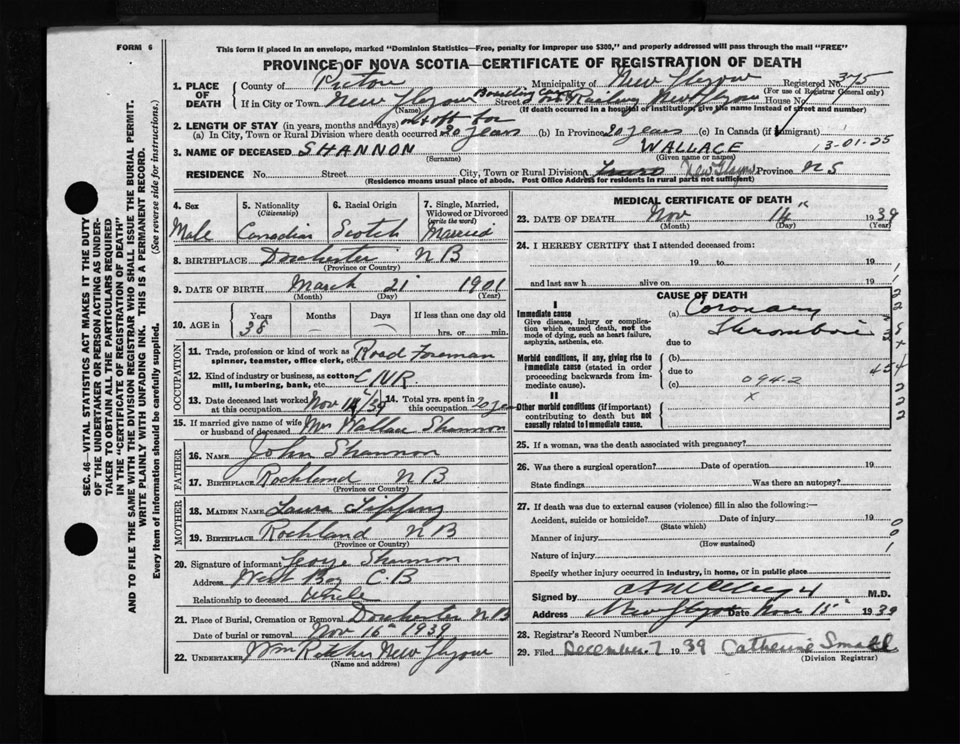 FORM 6
This form if placed in an envelope, marked "Dominion Statistics—Free, penalty for improper use $300," and properly addressed will pass through the mail "FREE"
PROVINCE OF NOVA SCOTIA—CERTIFICATE OF REGISTRATION OF DEATH
1. PLACE OF DEATH
County of Pictou Municipality of New Glasgow Registered No. 375
(For use of Registrar General only)
If in City or Town New Glasgow Street New Glasgow House No.
(Name) (If death occurred in a hospital or institution, give the name instead of street and number)
2. LENGTH OF STAY (in years, months and days)
(a) In City, Town or Rural Division where death occurred 20 years (b) In Province 20 years (c) In Canada (if immigrant)
3. NAME OF DECEASED SHANNON WALLACE 13-01-25
(Surname) (Given name or names)
RESIDENCE No. Street City, Town or Rural Division Truro New Glasgow Province N S
(Residence means usual place of abode. Post Office Address for residents in rural parts not sufficient)
SEC. 46—VITAL STATISTICS ACT MAKES IT THE DUTY OF THE UNDERTAKER OR PERSON ACTING AS UNDERTAKER TO OBTAIN ALL THE PARTICULARS REQUIRED IN THE "CERTIFICATE OF REGISTRATION OF DEATH" AND TO FILE THE SAME WITH THE DIVISION REGISTRAR WHO SHALL ISSUE THE BURIAL PERMIT.
WRITE PLAINLY WITH UNFADING INK. THIS IS A PERMANENT RECORD.
Every item of Information should be carefully supplied. (See reverse side for instructions.)
4. Sex Male
5. Nationality (Citizenship) Canadian
6. Racial Origin Scotch
7. Single, Married, Widowed or Divorced (write the word) Married
8. BIRTHPLACE Dorchester N B
(Province or Country)
9. DATE OF BIRTH March 21 1901
(Month) (Day) (Year)
10. AGE in Years 38 Months — Days — If less than one day old hrs. or min.
OCCUPATION
11. Trade, profession or kind of work as spinner, teamster, office clerk, etc. Road Foreman
12. Kind of industry or business, as cotton-mill, lumbering, bank, etc. CNR.
13. Date deceased last worked at this occupation Nov 14/39 14. Total yrs. spent in this occupation 20 years
15. If married give name of wife or husband of deceased Mrs Wallace Shannon
FATHER
16. NAME John Shannon
17. BIRTHPLACE Rockland N B
(Province or Country)
MOTHER
18. MAIDEN NAME Laura Tipping
19. BIRTHPLACE Rockland N B
(Province or Country)
20. Signature of informant George Shannon
Address West Bay C.B
Relationship to deceased Uncle
21. Place of Burial, Cremation or Removal Dorchester N B
Date of burial or removal Nov 16th 1939
22. UNDERTAKER Wm New Glasgow
(Name and address)
MEDICAL CERTIFICATE OF DEATH
23. DATE OF DEATH Nov 14th 1939
(Month) (Day) (Year)
24. I HEREBY CERTIFY that I attended deceased from:
19 to 19
and last saw h alive on 19
CAUSE OF DEATH
I
Immediate cause
Give disease, injury or complication which caused death, not the mode of dying, such as heart failure, asphyxia, asthenia, etc.
(a) Coronary Thrombosis
due to
Morbid conditions, if any, giving rise to immediate cause (stated in order proceeding backwards from immediate cause).
(b)
due to
(c) 094-2
x
II
Other morbid conditions (if important) contributing to death but not causally related to immediate cause.
25. If a woman, was the death associated with pregnancy?
26. Was there a surgical operation? Date of operation 19
State findings Was there an autopsy?
27. If death was due to external causes (violence) fill in also the following:—
Accident, suicide or homicide? Date of injury 19
(State which)
Manner of injury
(How sustained)
Nature of injury
Specify whether injury occurred in industry, in home, or in public place
Signed by M.D.
Address New Glasgow Date Nov 15th 1939
28. Registrar's Record Number
29. Filed December 7 1939 Catherine Small
(Division Registrar)